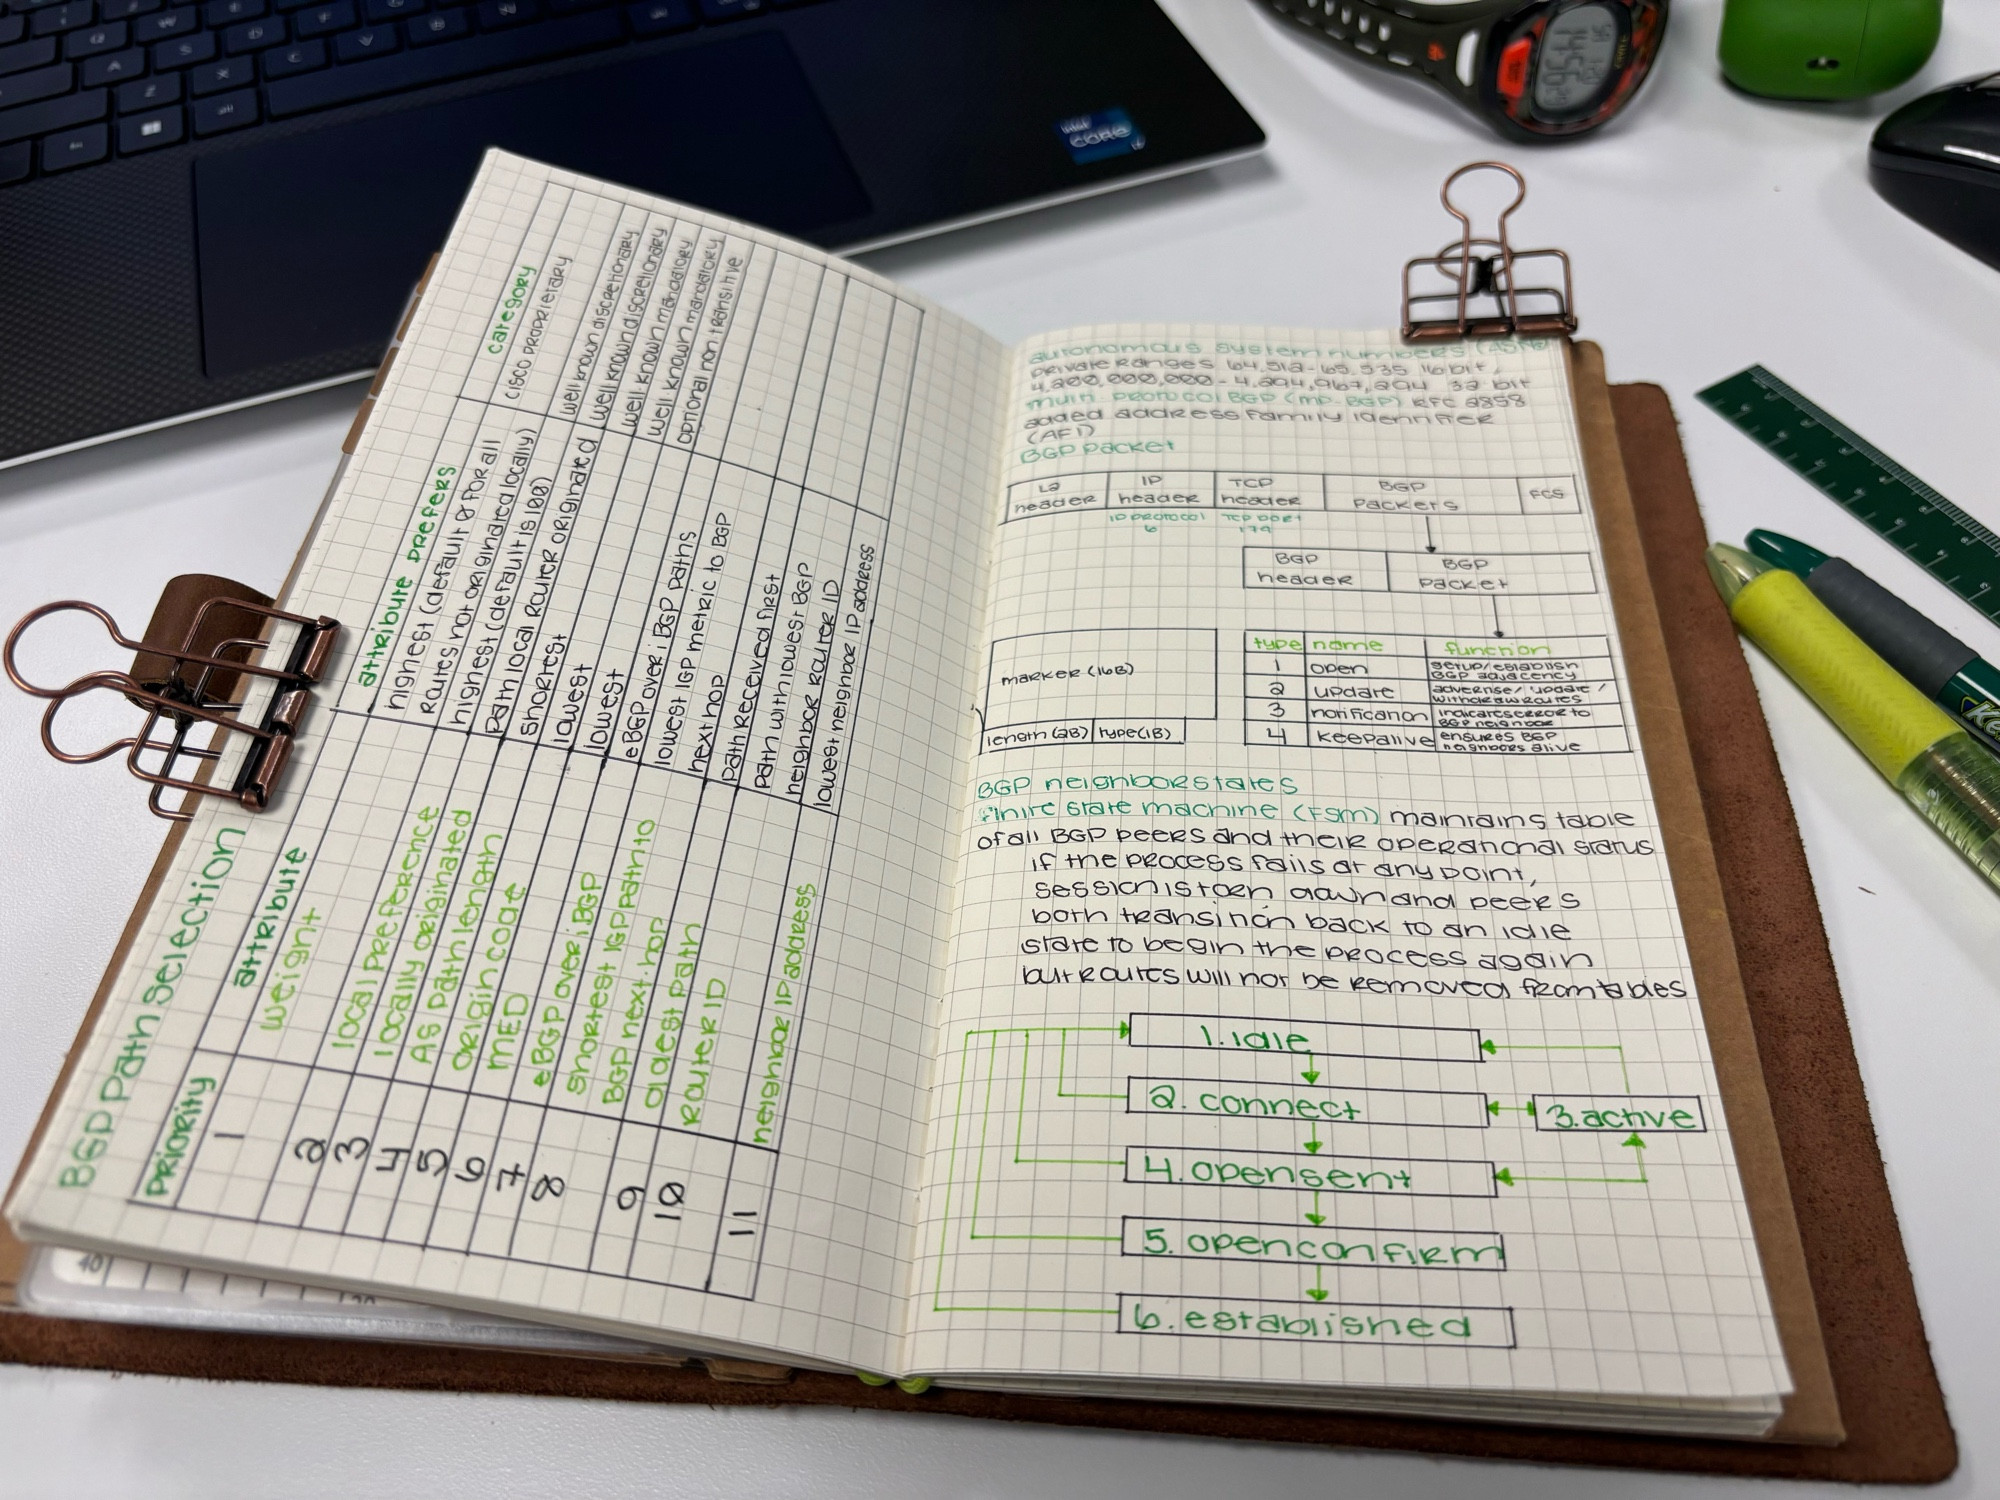 BGP Path Selection
priority
attribute
attribute prefers
category
1
weight
highest (default 0 for all
routes not originated locally)
cisco proprietary
2
local preference
highest (default is 100)
well known discretionary
3
locally originated
path local router originated
well known discretionary
4
AS path length
shortest
well known mandatory
5
origin code
lowest
well known mandatory
6
MED
lowest
optional non transitive
7
eBGP over iBGP
eBGP over iBGP paths
8
shortest IGP path to
BGP next-hop
lowest IGP metric to BGP
next hop
9
oldest path
path received first
10
router ID
path with lowest BGP
neighbor router ID
11
neighbor IP address
lowest neighbor IP address
autonomous system numbers (ASNs)
private ranges 64,512-65,535 16 bit,
4,200,000,000-4,294,967,294 32 bit
multi-protocol BGP (MP-BGP) RFC 2858
added address family identifier
(AFI)
BGP packet
L2 header
IP header
TCP header
BGP packets
FCS
IP protocol 6
TCP port 179
BGP header
BGP packet
marker (16B)
length (2B) type (1B)
type name function
1 open setup/establish
BGP adjacency
2 update advertise/update/
withdraw routes
3 notification indicates error to
BGP neighbor
4 keepalive ensures BGP
neighbors alive
BGP neighbor states
finite state machine (FSM) maintains table
of all BGP peers and their operational status
if the process fails at any point,
session is torn down and peers
both transition back to an idle
state to begin the process again
but routes will not be removed from tables
1. idle
2. connect
3. active
4. opensent
5. openconfirm
6. established
intel
CORE